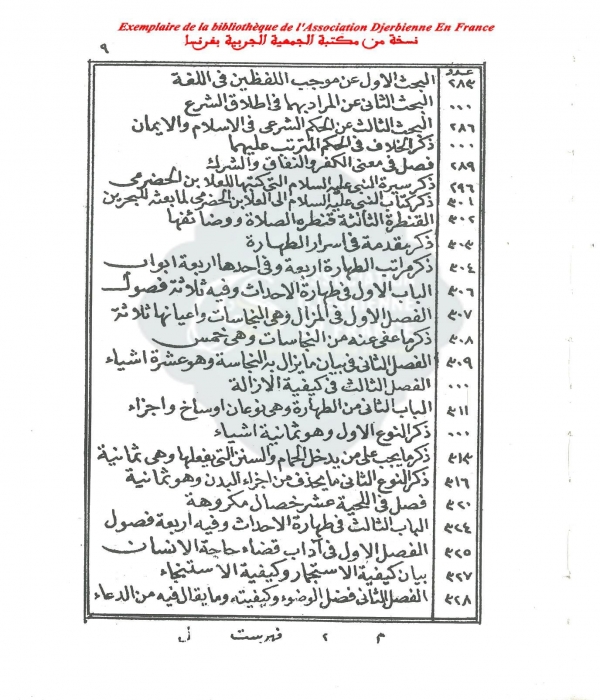 Exemplaire de la bibliothèque de l'Association Djerbienne En France
نسخة من مكتبة الجمعية الجربية بفرنسا
٩
عدد
٢٨٣ البحث الاول عن موجب اللفظين فى اللغة
٠٠٠ البحث الثانى عن المراد بهما فى اطلاق الشرع
٢٨٦ البحث الثالث عن الحكم الشرعى فى الاسلام والايمان
٠٠٠ ذكر الخلاف فى الحكم المترتب عليهما
٢٨٩ فصل فى معنى الكفر والنفاق والشرك
٢٩٦ ذكر سيرة النبى عليه السلام التى كتبها للعلا بن الحضرمى
٣٠١ ذكر كتاب النبى عليه السلام الى العلا بن الحضرمى لما بعثه للبحرين
٣٠٢ القنطرة الثالثة قنطرة الصلاة ووضائفها
٣٠٣ ذكر مقدمة فى اسرار الطهارة
٣٠٤ ذكر مراتب الطهارة اربعة وفى احدها اربعة ابواب
٣٠٦ الباب الاول فى طهارة الاحداث وفيه ثلاثة فصول
٣٠٧ الفصل الاول فى المزال وهى النجاسات واعيانها ثلاثة
٣٠٨ ذكر ما عفى عنه من النجاسات وهى خمس
٣٠٩ الفصل الثانى فى بيان ما يزال به النجاسة وهو عشرة اشياء
٠٠٠ الفصل الثالث فى كيفية الازالة
٣١١ الباب الثانى من الطهارة وهى نوعان اوساخ واجزاء
٠٠٠ ذكر النوع الاول وهو ثمانية اشياء
٣١٣ ذكر ما يجب على من يدخل الحمام والسنن التى يفعلها وهى ثمانية
٣١٦ ذكر النوع الثانى ما يحذف من اجزاء البدن وهو ثمانية
٣٢٠ فصل فى اللحية عشر خصال مكروهة
٣٢٤ الباب الثالث فى طهارة الاحداث وفيه اربعة فصول
٣٢٥ الفصل الاول فى آداب قضاء حاجة الانسان
٣٢٧ بيان كيفية الاستجمار وكيفية الاستنجاء
٣٢٨ الفصل الثانى فضل الوضوء وكيفيته وما يقال فيه من الدعاء
م ٢ فهرست ل